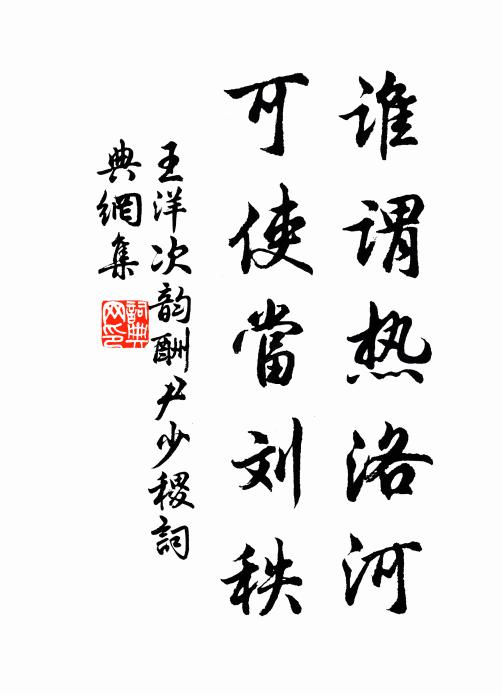 谁谓热洛河
可使當刘秩
王洋次韵酬尹少稷詞
典網集
詞典
网印